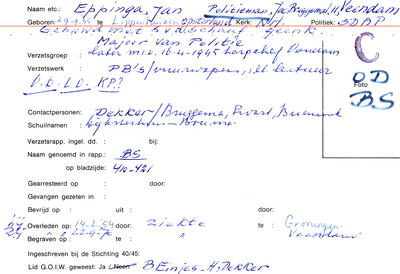 Naam etc.: Eppinga, Jan Politieman, Jac. Bruggemal, W. Veendam
Geboren: 29-9- te Lippenhuizen Opsterland Kerk: N/H Politiek: SDAP
Gehuwd met S.v.d. Schaaf geen K.
Majoor van Politie
Verzetsgroep : later m.i.v. 16-4-1945 korpschef Veendam
Verzetswerk : PB's / vuurwapens, ill. lectuur
O.D. L.O. KP?
C
Foto
OD
BS
Contactpersonen: Dekker/Bruggema, Swart,
Schuilnamen :
Verzetsrapp. ingel. dd. : bij:
Naam genoemd in rapp.: BS
op bladzijde: 410-421
Gearresteerd op : door:
Gevangen gezeten in :
Bevrijd op : uit : door:
Overleden op : 14-2-'54 door: ziekte te : Groningen
Veendam
Begraven op : te :
Ingeschreven bij de Stichting 40/45:
Lid G.O.I.W. geweest: Ja Neen B Einjes-H. Dekker